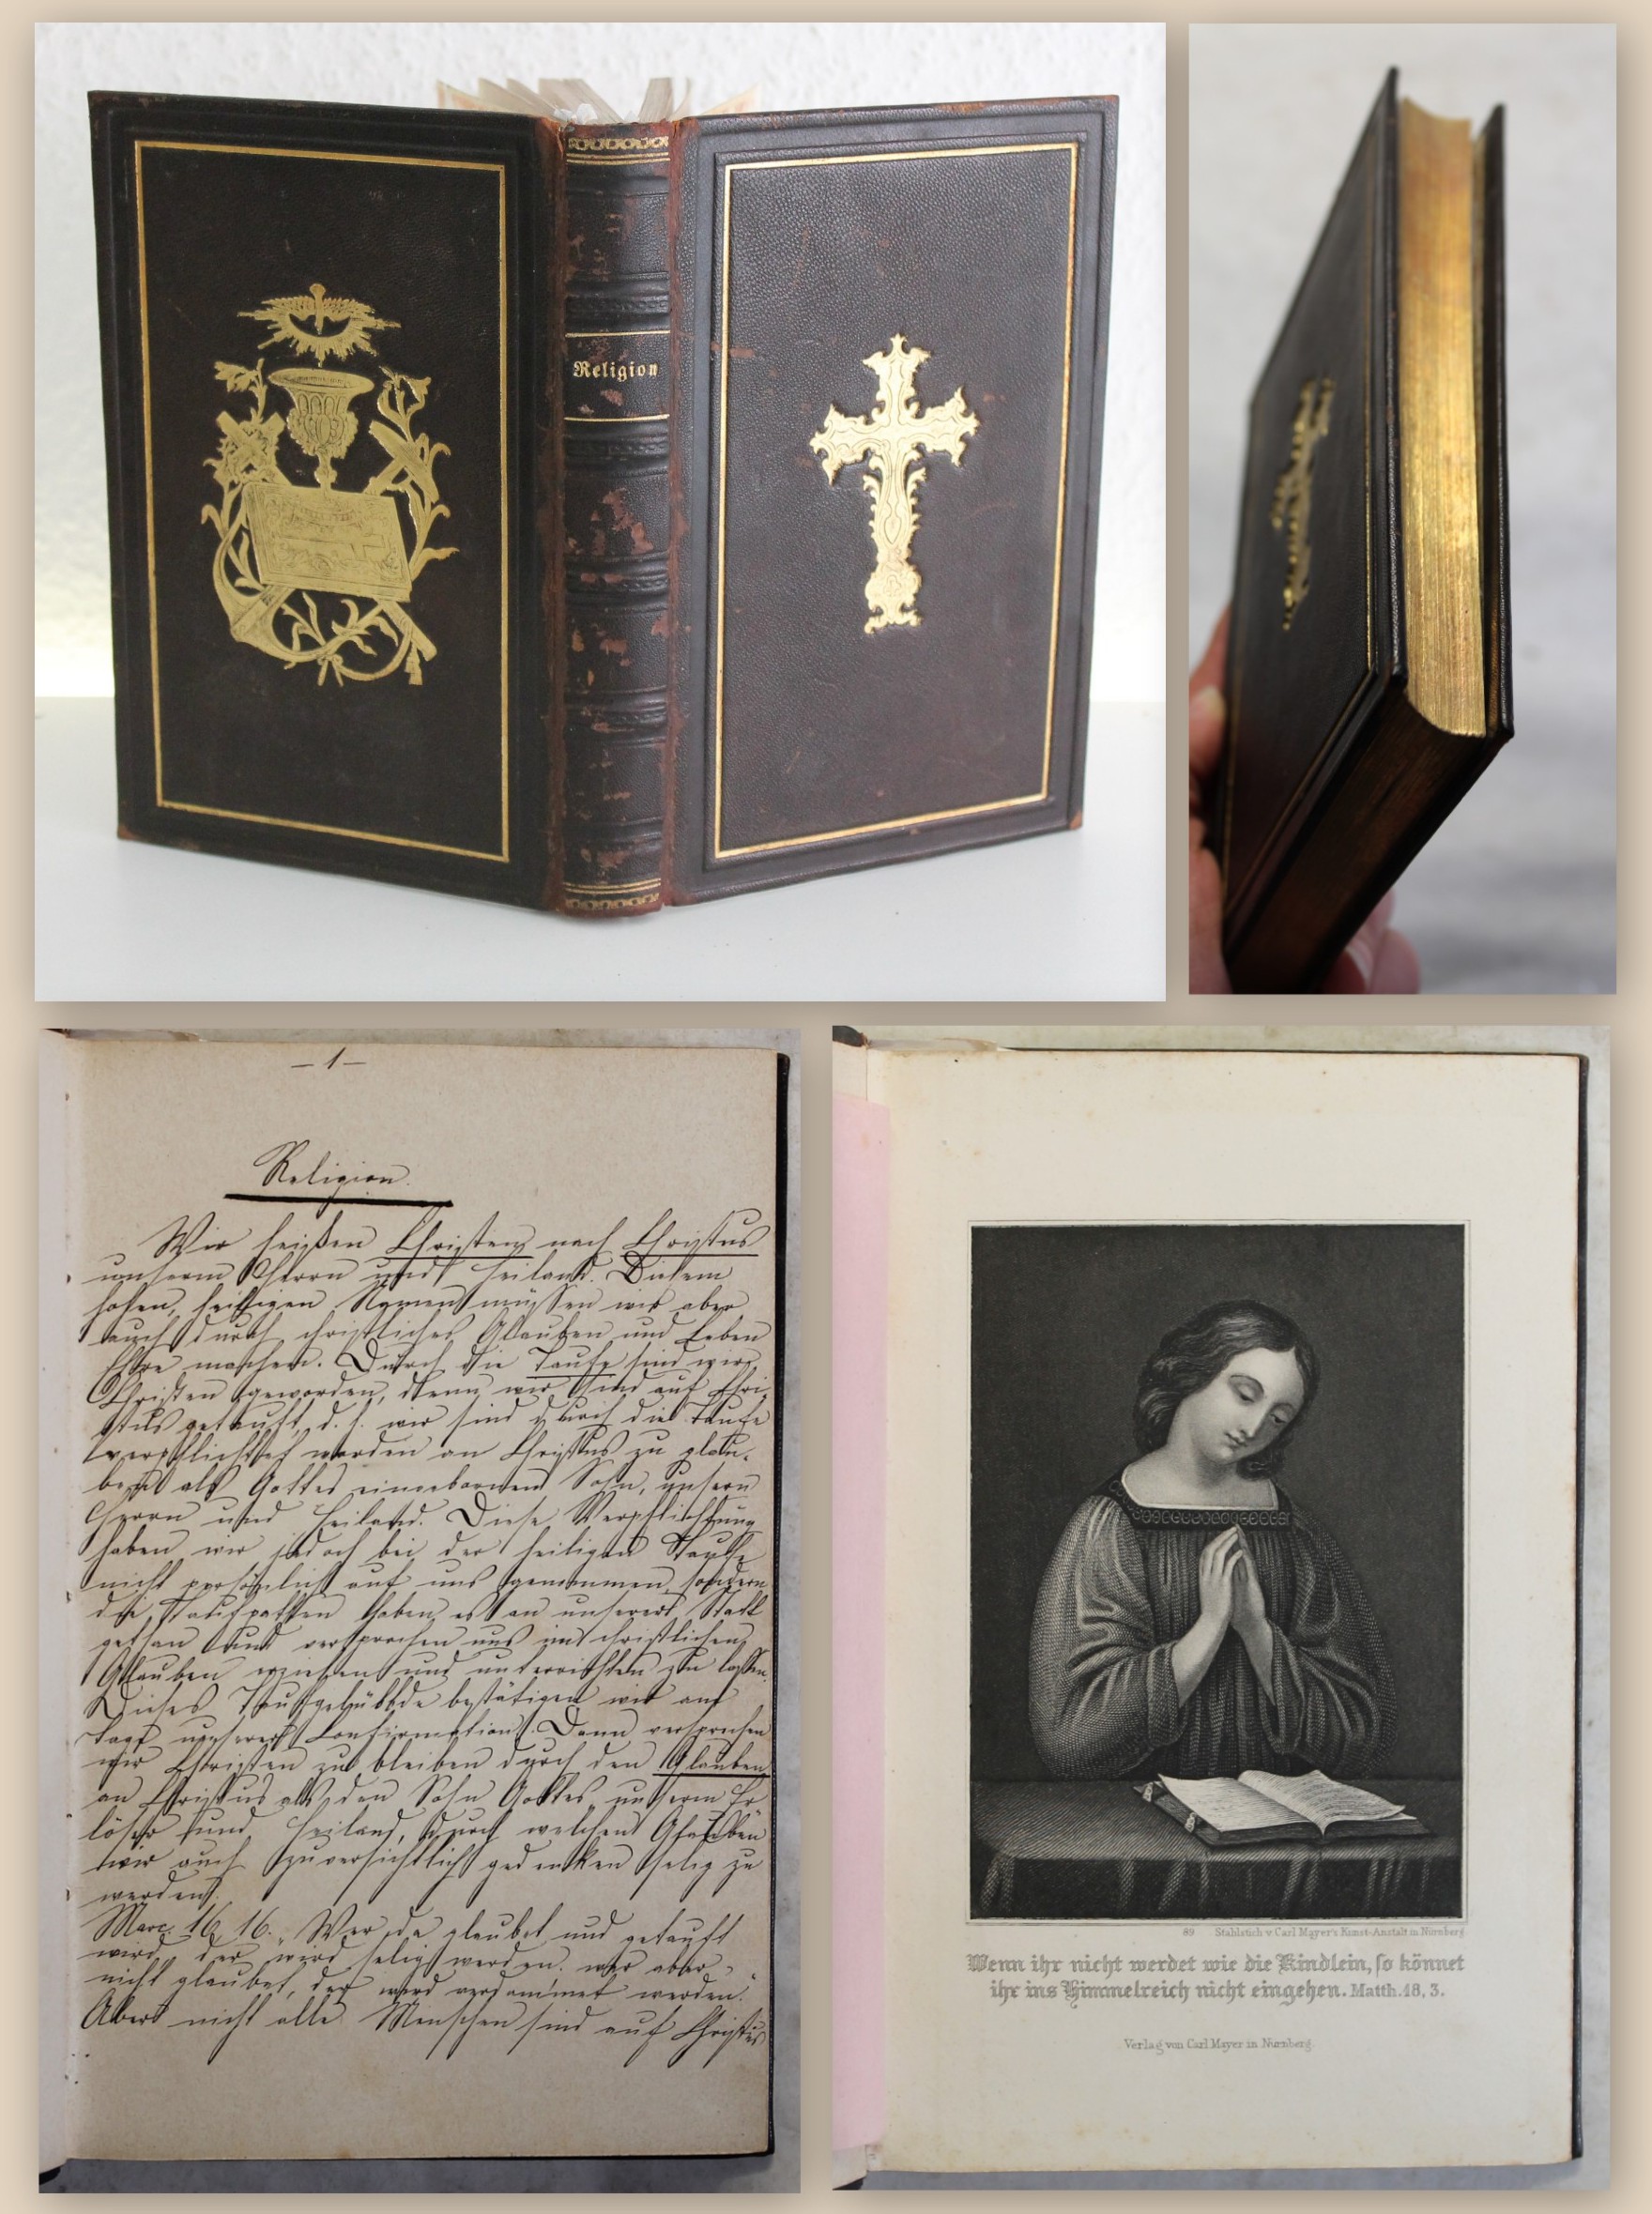 Religion
– 1 –
Religion.
Wir heißen Christen nach Christus
unserm Herrn und Heiland. Diesem
hohen, heiligen Namen müssen wir aber
auch durch christliches Glauben und Leben
Ehre machen. Durch die Taufe sind wir
Christen geworden, denn wir sind auf Chri-
stus getauft, d. h. wir sind durch die Taufe
verpflichtet worden an Christus zu glau-
ben als Gottes eingebornen Sohn, unsern
Herrn und Heiland. Diese Verpflichtung
haben wir jedoch bei der heiligen Taufe
nicht persönlich auf uns genommen, sondern
die Taufpathen haben es an unserer Statt
gethan und versprochen uns im christlichen
Glauben erziehen und unterrichten zu lassen.
Dieses Taufgelübde bestätigen wir am
Tage unserer Confirmation. Dann versprechen
wir Christen zu bleiben durch den Glauben
an Christus als den Sohn Gottes, unserm Er
löser und Heiland, durch welchen Glauben
wir auch zuversichtlich gedenken selig zu
werden.
Marc. 16, 16. „Wer da glaubet und getauft
wird, der wird selig werden. wer aber
nicht glaubet, der wird verdammet werden."
Aber nicht alle Menschen sind auf Christus
89 Stahlstich v. Carl Mayer's Kunst-Anstalt in Nürnberg
Wenn ihr nicht werdet wie die Kindlein, so könnet
ihr ins Himmelreich nicht eingehen. Matth. 18, 3.
Verlag von Carl Mayer in Nürnberg.